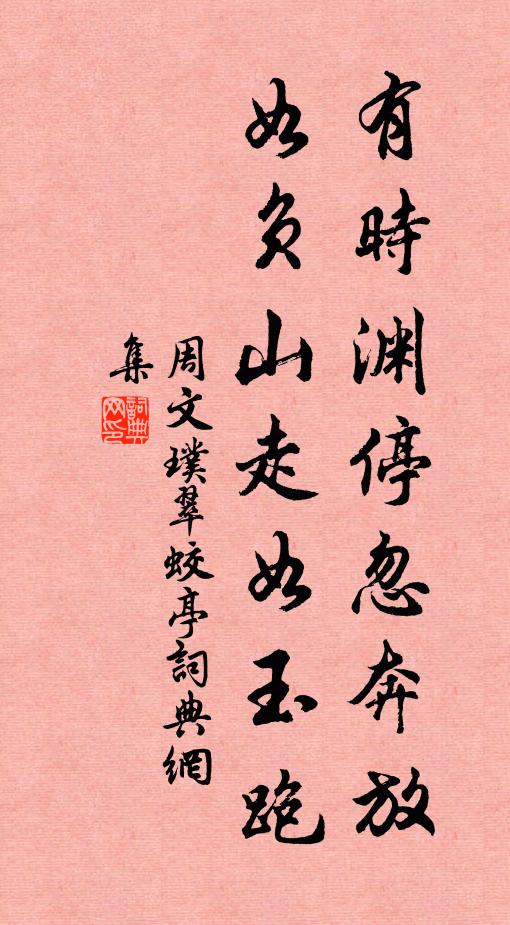 有時淵停忽奔放
如負山走如玉跑
周文璞翠蛟亭詞典網
集
詞典网印